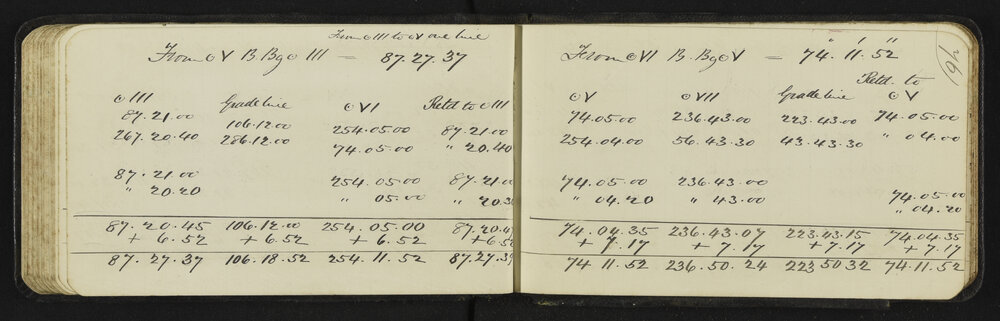 From ⊙III to ⊙V one line
From ⊙V B. Bg ⊙III = 87.27.37
⊙III Grade line ⊙VI Retd. to ⊙III
87.21.00 106.12.00 254.05.00 87.21.00
267.20.40 286.12.00 74.05.00 " 20.40
87.21.00 254.05.00 87.21.00
" 20.20 " 05.00 " 20.3
87.20.45 106.12.00 254.05.00 87.20.4
+ 6.52 + 6.52 + 6.52 + 6.5
87.27.37 106.18.52 254.11.52 87.27.3
196
From ⊙VI B. Bg ⊙V = 74° 11' 52"
⊙V ⊙VII Grade line Retd. to ⊙V
74.05.00 236.43.00 223.43.00 74.05.00
254.04.00 56.43.30 43.43.30 " 04.00
74.05.00 236.43.00 74.05.00
" 04.20 " 43.00 " 04.20
74.04.35 236.43.07 223.43.15 74.04.35
+ 7.17 + 7.17 + 7.17 + 7.17
74.11.52 236.50.24 223 50 32 74.11.52